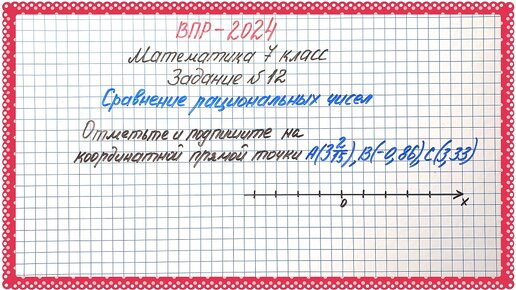 ВПР-2024
Математика 7 класс
Задание №12
Сравнение рациональных чисел
Отметьте и подпишите на
координатной прямой точки A(3 2/15), B(-0,86), C(3,33)
0
x